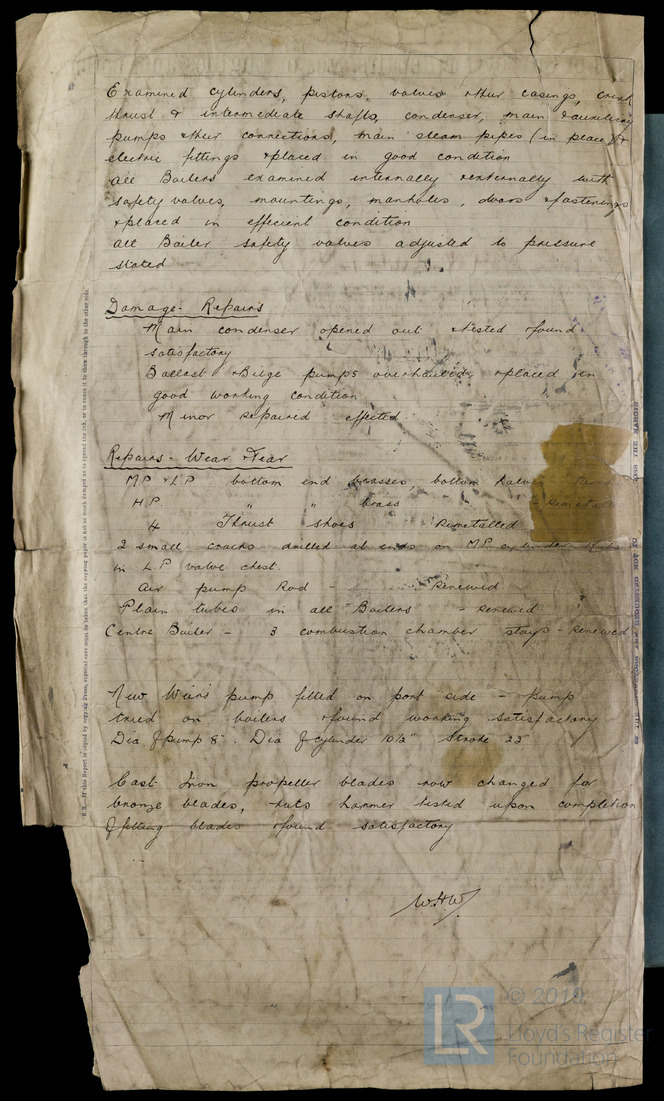 Examined cylinders, pistons, valves & their casings, crank
thrust & intermediate shafts, condenser, main & auxiliary
pumps & their connections, main steam pipes (in place) &
electric fittings & placed in good condition
all Boilers examined internally & externally with
safety valves, mountings, manholes, doors & fastenings
& placed in efficient condition
all Boiler safety valves adjusted to pressure
stated
Damage Repairs
Main condenser opened out & tested & found
satisfactory
Ballast & Bilge pumps overhauled & placed in
good working condition
Minor repaired effected
Repairs - Wear & Tear
MP & LP bottom end brasses, bottom halves
HP " " brass - remetalled
4 Thrust shoes - Remetalled
2 small cracks drilled at ends on MP cylinder &
in LP valve chest
Air pump Rod - Renewed
Plain tubes in all Boilers - renewed
Centre Boiler - 3 combustion chamber stays - Renewed
New Weirs pump fitted on port side - pump
tried on boilers & found working satisfactory
Dia of pump 8". Dia of cylinder 10½" Stroke 22"
Cast Iron propeller blades now changed for
bronze blades, nuts hammer tested upon completion
of fitting blades & found satisfactory
W.H.W.
N.B. If this Report is copied by copying Press, especial care must be taken that the copying paper is not so much damped as to spread the ink, or to cause it to show through to the other side.
LR
© 2019
Lloyd's Register
Foundation